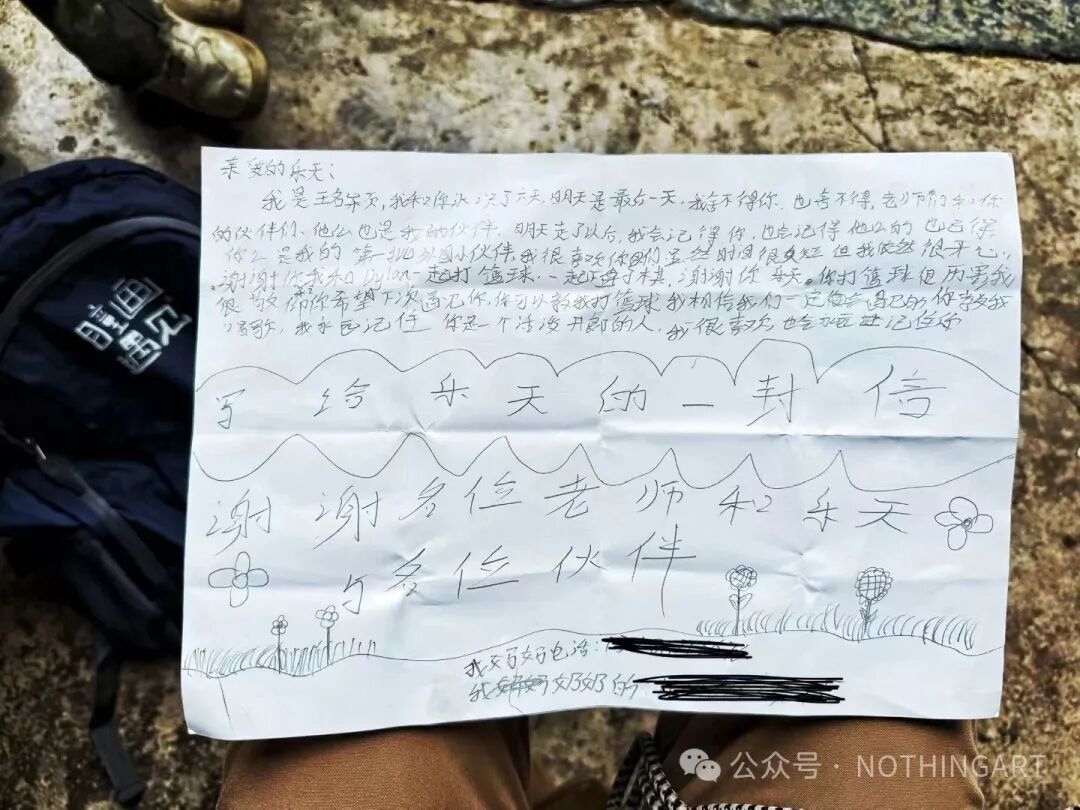 亲爱的乐天:
我是王 我和你认识了六天.明天是最后一天.我舍不得你.也舍不得,老师们和你
的伙伴们.他们也是我的伙伴.明天走了以后,我会记得你,也会记得他们的 也记得
你们是我的第一批 小伙伴.我很喜欢你 虽然时间很短 但我依然很开心
.谢谢你我和Dylan一起打篮球.一起下 棋,谢谢你 乐天。你打篮球 厉害我
很 你希望下次遇见你,你可以教我打篮球 我相信我们一定会 遇见的 你教我
唱歌,我永远记住 你是一个活泼开朗的人,我很喜欢 也会永远 记住你
写给乐天的一封信
谢谢各位老师和乐天
与各位伙伴
我妈妈电话:
我 奶奶的
晴画
公众号 · NOTHINGART